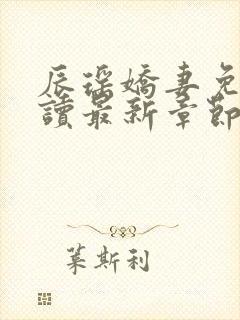 辰瑤嬌妻免
讀最新章節
葉斯利